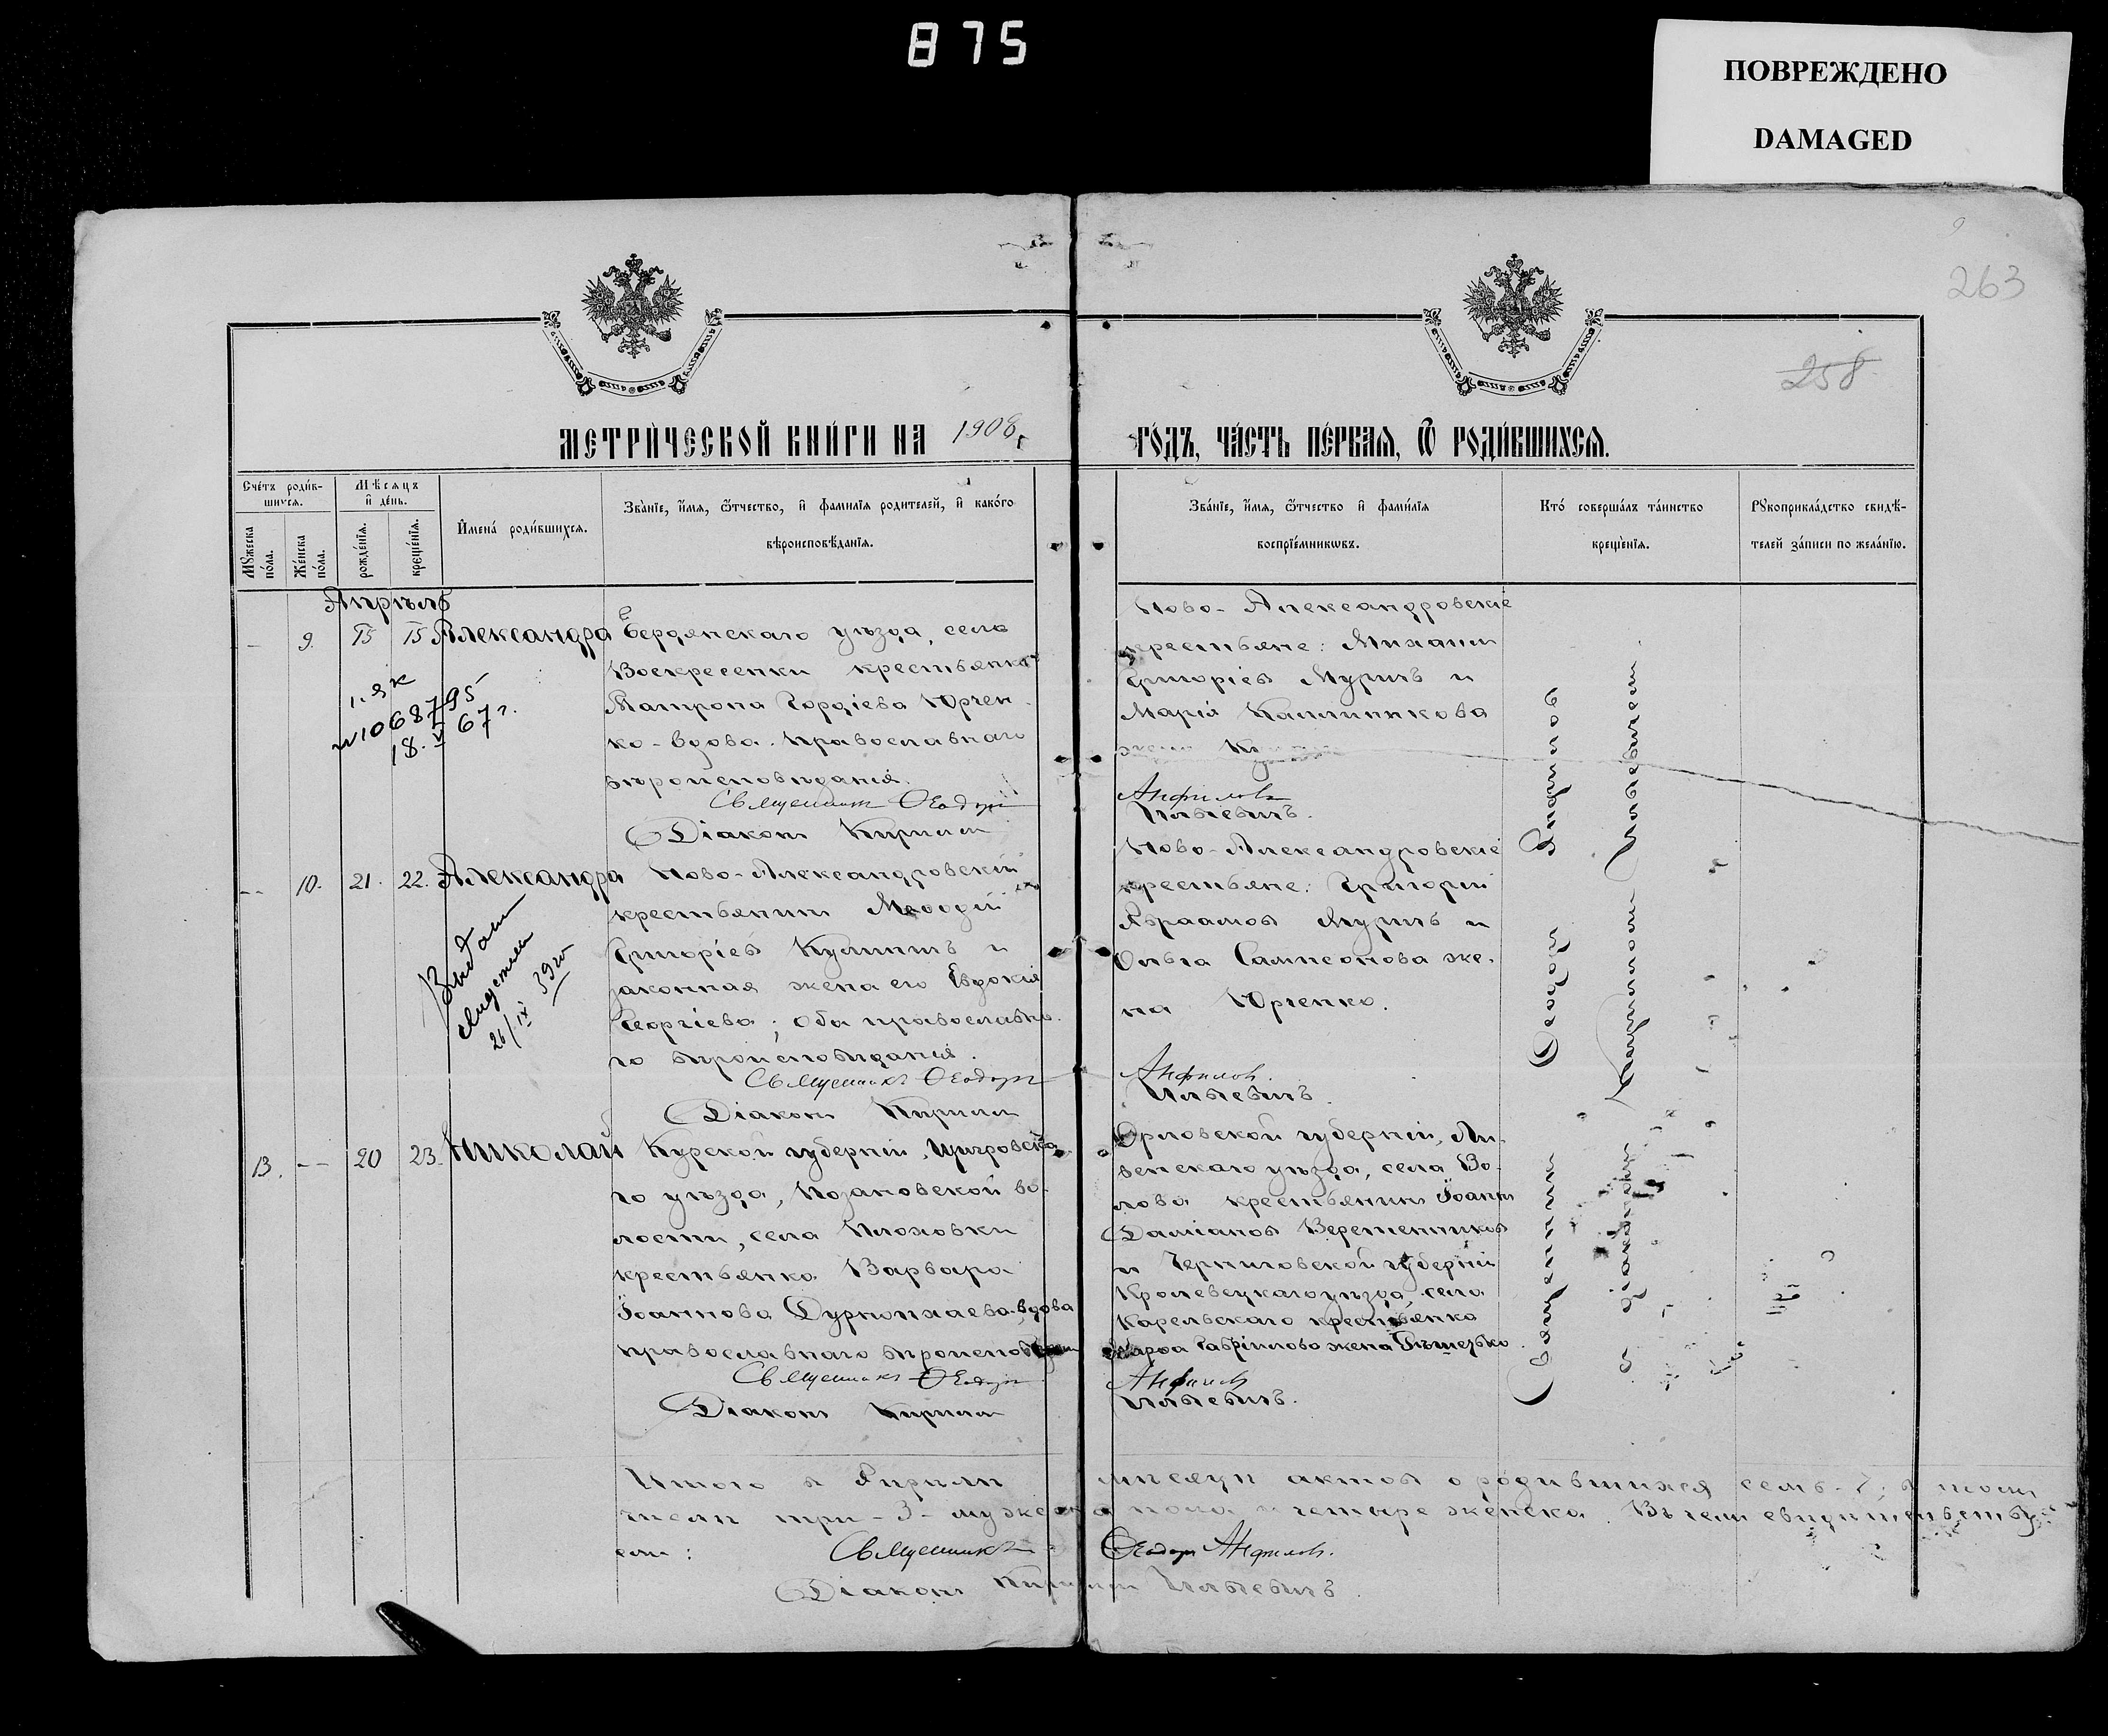 875
ПОВРЕЖДЕНО
DAMAGED
263
258
МЕТРИ́ЧЕСКОЙ КНИ́ГИ НА 1908 г
ГО́ДЪ, ЧА́СТЬ ПЕ́РВАѦ, Ѿ РОДИ́ВШИХСѦ.
Сче́тъ роди́в-
шихсѧ.
Мꙋ́жеска по́ла.
Же́нска по́ла.
Мѣ́сѧцъ
и҆ де́нь.
рожде́нїѧ.
креще́нїѧ.
И҆мена̀ роди́вшихсѧ.
Зва́нїе, и҆́мѧ, ѻ҆́тчество, и҆ фамилїѧ родителей, и҆ како́гѡ
вѣроисповѣ́данїѧ.
Зва́нїе, и҆́мѧ, ѻ҆́тчество и҆ фами́лїѧ
воспрїе́мникѡвъ.
Кто́ соверша́лъ та́инство
креще́нїѧ.
Рꙋкоприкла́дство свидѣ́-
телей за́писи по жела́нїю.
Апрѣль
— 9. 15 15 Александра
Бердянскаго уѣзда, села
Воскресенки крестьянка
Матрона Гордіева Юрчен-
ко - вдова. Православнаго
вѣроисповѣданія.
Священникъ Ѳеодоръ
Діаконъ Кириллъ
Ново-Александровскіе
крестьяне: Михаилъ
Григоріевъ Муричъ и
Марія Калинникова
жена
Анфиловъ
Ильевичъ.
N 1068795
18.V 67 г.
— 10. 21. 22. Александра
Ново-Александровскій
крестьянинъ Меѳодій
Григоріевъ Куличъ и
законная жена его Евдокія
Георгіева; оба православна-
го вѣроисповѣданія.
Священникъ Ѳеодоръ
Діаконъ Кириллъ
Ново-Александровскіе
крестьяне: Григорій
Авраамовъ Муричъ и
Ольга Сампсонова же-
на Юрченко.
Анфиловъ.
Ильевичъ.
Выдан
26/IX 39 го
13. — 20 23. Николай
Курской губерніи, Щигровска-
го уѣзда, во-
лости, села Плоховки
крестьянка Варвара
Іоаннова вдова
православнаго вѣроисповѣданія
Священникъ Ѳеодоръ
Діаконъ Кириллъ
Орловской губерніи, Ли-
венскаго уѣзда, села Во-
лова крестьянинъ Іоаннъ
Даміановъ Веретенниковъ
и Черниговской губерніи
Кролевецкаго уѣзда, села
Карельскаго крестьянка
Марѳа Гавріилова жена
Анфиловъ
Ильевичъ.
Священникъ Ѳеодоръ Андриловъ
съ діакономъ Кирилломъ Ильевичемъ.
Итого въ Апрѣлѣ мѣсяцѣ актовъ о родившихся семь - 7, въ томъ
числѣ три - 3 - мужеска пола и четыре женска. Въ чемъ свидѣтельству-
емъ: Священникъ Ѳеодоръ Анфиловъ.
Діаконъ Кириллъ Ильевичъ.